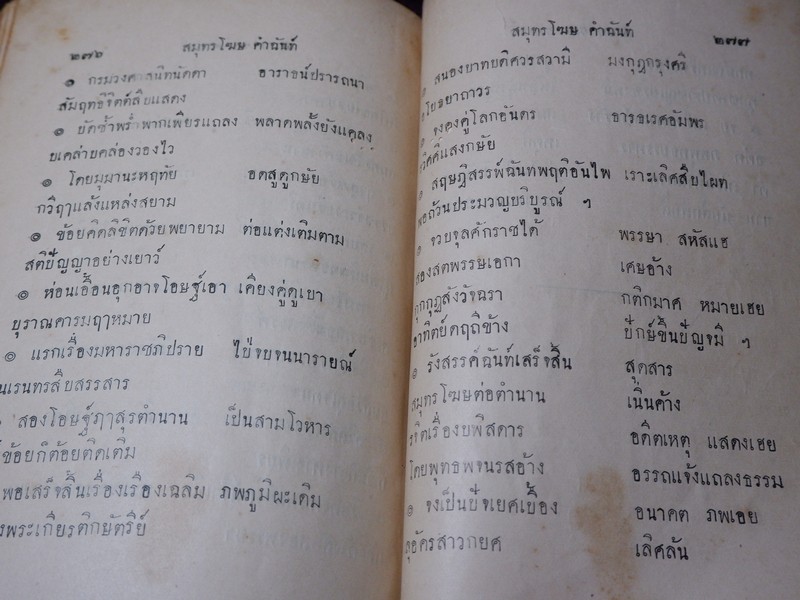 ๒๗๖ สมุทรโฆษ คำฉันท์
๏ กรมวงศสนิทนัดดา อาราธน์ปรารถนา
สัมฤทธิจิตต์สืบแสดง
๏ ยัดซ้ำพร่ำพากเพียรแถลง พลาดพลั้งยังแคลง
บเคล่าบคล่องวองไว
๏ โดยมุมานะหฤทัย อดสูดูกษัย
กวิฦๅแล้งแหล่งสยาม
๏ ข้อยคิดลิขิตด้วยพยายาม ต่อแต่งเติมตาม
สติปัญญาอย่างเยาว์
๏ ห่อนเอื้อนอุกอาจโอษฐ์เอา เคียงคู่ดูเบา
บุราณคารมฦๅหมาย
๏ แรกเรื่องมหาราชภิปราย ไป่จบจนนารายณ์
นเรนทรสืบสรรสาร
สองโอษฐ์ฦๅสุรตำนาน เป็นสามโวหาร
ข้อยก็ต้อยติดเติม
พอเสร็จสิ้นเรื่องเรื่องเฉลิม ภพภูมิผะเดิม
พระเกียรติกษัตริย์
สมุทรโฆษ คำฉันท์ ๒๗๗
๏ สนองบาทบดิศวรสวามิ มงกุฎกรุงศรี
อโยธยาถาวร
๏ จงคงคู่โลกอันดร ธารธเรศอัมพร
แสงกษัย
๏ สฤษฎิสรรพ์ฉันทพฤติอันไพ เราะเลิศสืบไผท
พอถ้วนประมวญบริบูรณ์ ฯ
๏ จวบจุลศักราชได้ พรรษา สหัสแฮ
สองสตพรรษเอกา เศษอ้าง
กุกกุฏสังวัจฉรา กติกมาศ หมายเฮย
อาทิตย์ดฤถีข้าง ปักษ์ขึ้นปัญจมี ฯ
๏ รังสรรค์ฉันท์เสร็จสิ้น สุดสาร
สมุทรโฆษต่อตำนาน เนิ่นค้าง
รจิตเรื่องบพิสดาร อดิตเหตุ แสดงเฮย
โดยพุทธพจนรสอ้าง อรรถแจ้งแถลงธรรม
๏ จงเป็นปิ่จเยศเบื้อง อนาคต ภพเอย
สุอัครสาวกยศ เลิศล้น